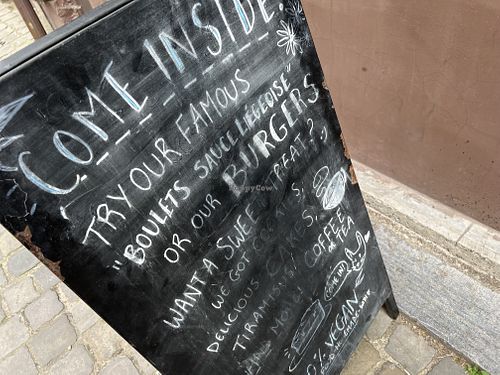 COME INSIDE.
TRY OUR FAMOUS
"BOULETS SAUCE LIÉGEOISE"
OR OUR BURGERS
WANT A SWEET TREAT?
WE GOT COOKIES,
DELICIOUS CAKES,
TIRAMISU, COFFEE
OR TEA
AND MORE!
COME IN!
% VEGAN
HappyCow